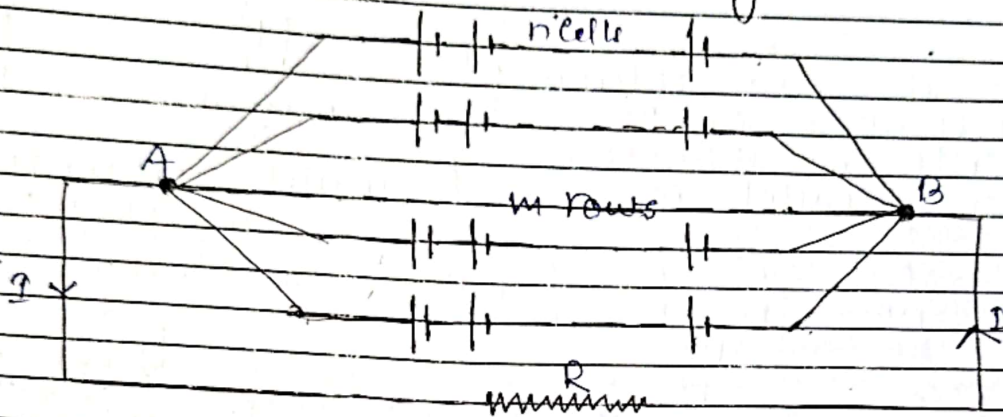 n'cells
A
m rows
B
I
I
R